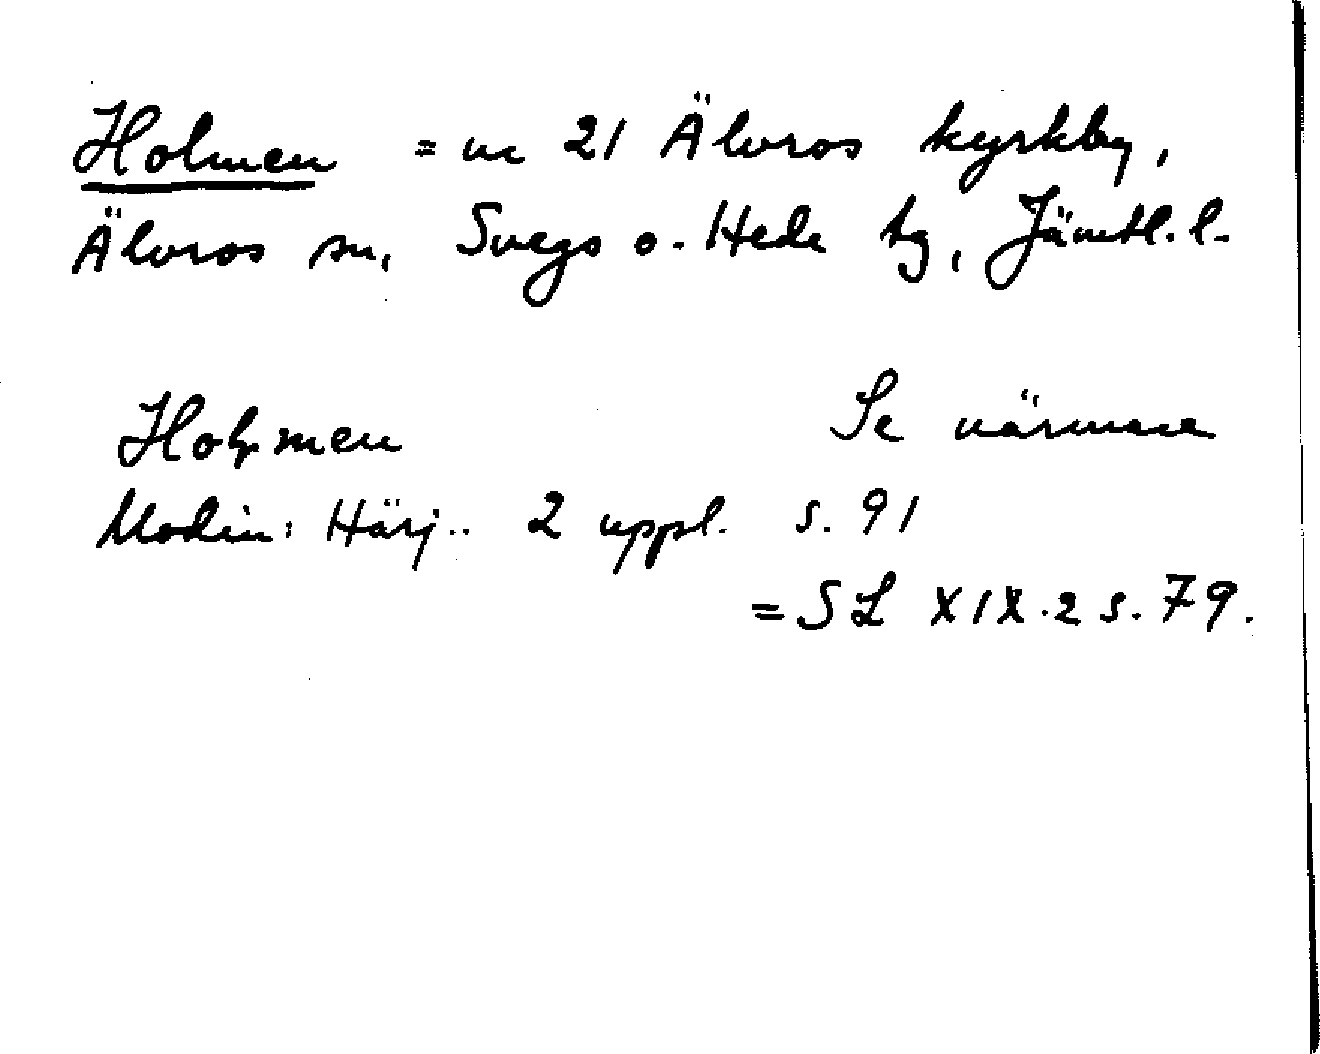 Holmen = nr 21 Älvros kyrkby,
Älvros sn, Svegs o. Hede tg, Jämtl. l.
Holmen Se närmare
Modin: Härj.. 2 uppl. s. 91
= SL XIX.2 s. 79.